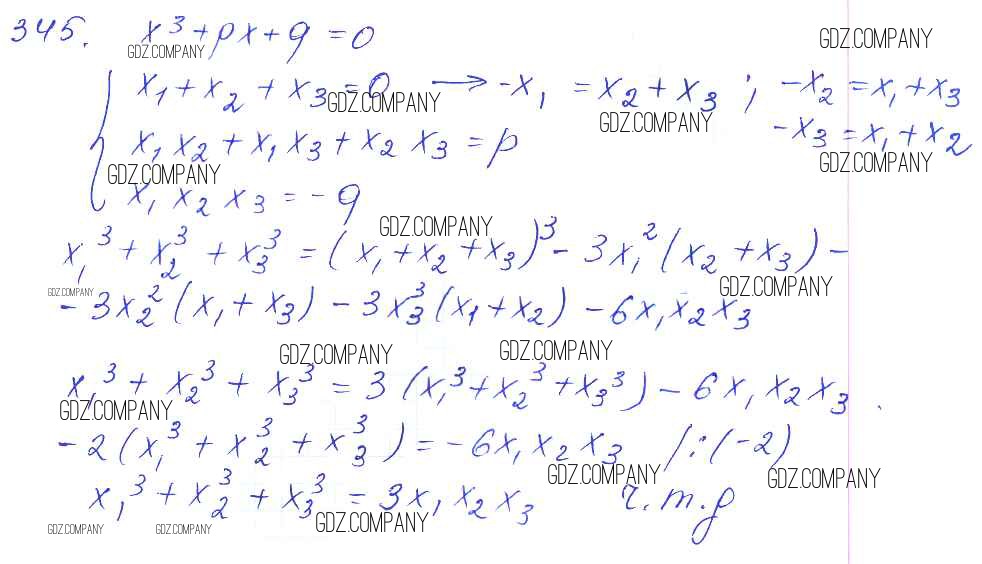 345. x³ + px + q = 0
GDZ.COMPANY GDZ.COMPANY
x₁ + x₂ + x₃ = 0 → -x₁ = x₂ + x₃ ; -x₂ = x₁ + x₃
GDZ.COMPANY GDZ.COMPANY
-x₃ = x₁ + x₂
x₁x₂ + x₁x₃ + x₂x₃ = p
GDZ.COMPANY GDZ.COMPANY
x₁x₂x₃ = -q
GDZ.COMPANY
x₁³ + x₂³ + x₃³ = (x₁ + x₂ + x₃)³ - 3x₁²(x₂ + x₃) -
GDZ.COMPANY GDZ.COMPANY
- 3x₂²(x₁ + x₃) - 3x₃³(x₁ + x₂) - 6x₁x₂x₃
GDZ.COMPANY GDZ.COMPANY
x₁³ + x₂³ + x₃³ = 3(x₁³ + x₂³ + x₃³) - 6x₁x₂x₃
GDZ.COMPANY
-2(x₁³ + x₂³ + x₃³) = -6x₁x₂x₃ /:(-2)
GDZ.COMPANY GDZ.COMPANY
x₁³ + x₂³ + x₃³ = 3x₁x₂x₃ ч.т.д
GDZ.COMPANY GDZ.COMPANY GDZ.COMPANY